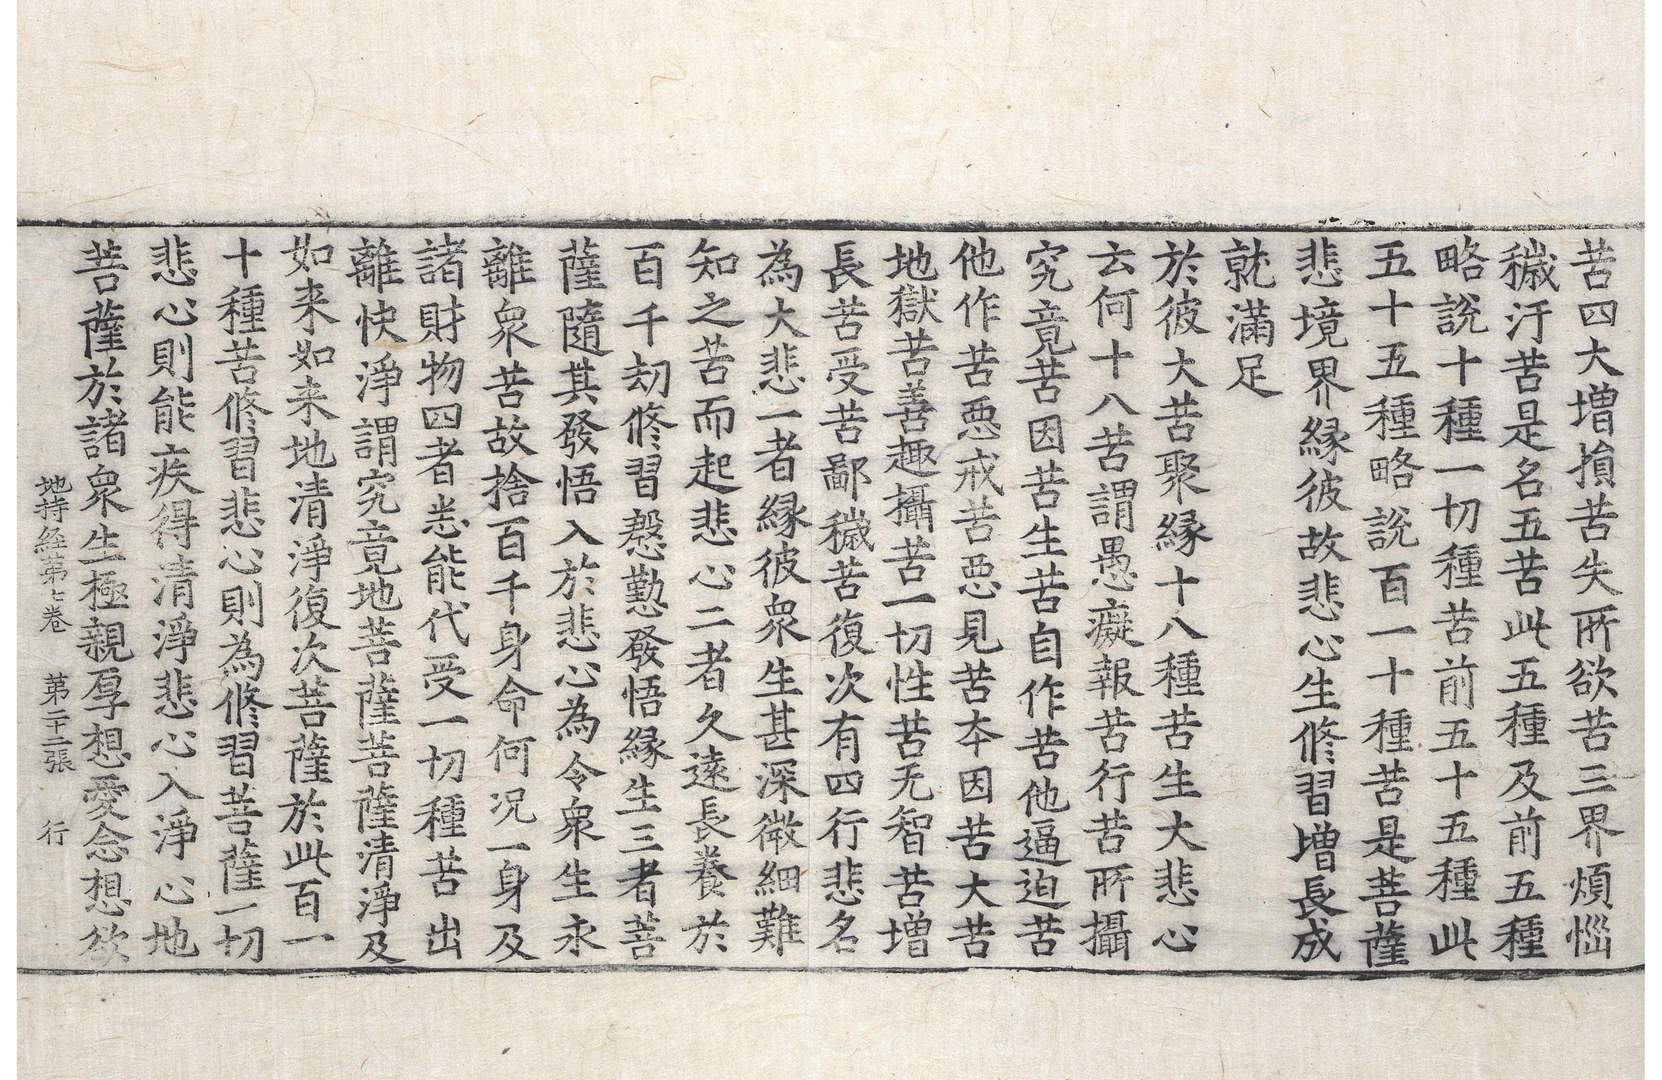 苦四大增損苦失所欲苦三界煩惱
穢汙苦是名五苦此五種及前五種
略說十種一切種苦前五十五種此
五十五種略說百一十種苦是菩薩
悲境界緣彼故悲心生修習增長成
就滿足
於彼大苦聚緣十八種苦生大悲心
云何十八苦謂愚癡報苦行苦所攝
究竟苦因苦生苦自作苦他逼迫苦
他作苦惡戒苦惡見苦本因苦大苦
地獄苦善趣攝苦一切性苦无智苦增
長苦受苦鄙穢苦復次有四行悲名
為大悲一者緣彼衆生甚深微細難
知之苦而起悲心二者久遠長養於
百千劫修習慇懃發悟緣生三者菩
薩隨其發悟入於悲心為令衆生永
離衆苦故捨百千身命何況一身及
諸財物四者悉能代受一切種苦出
離快淨謂究竟地菩薩菩薩清淨及
如来如来地清淨復次菩薩於此百一
十種苦修習悲心則為修習菩薩一切
悲心則能疾得清淨悲心入淨心地
菩薩於諸衆生極親厚想愛念想欲
地持經第七卷 第二十二張 行